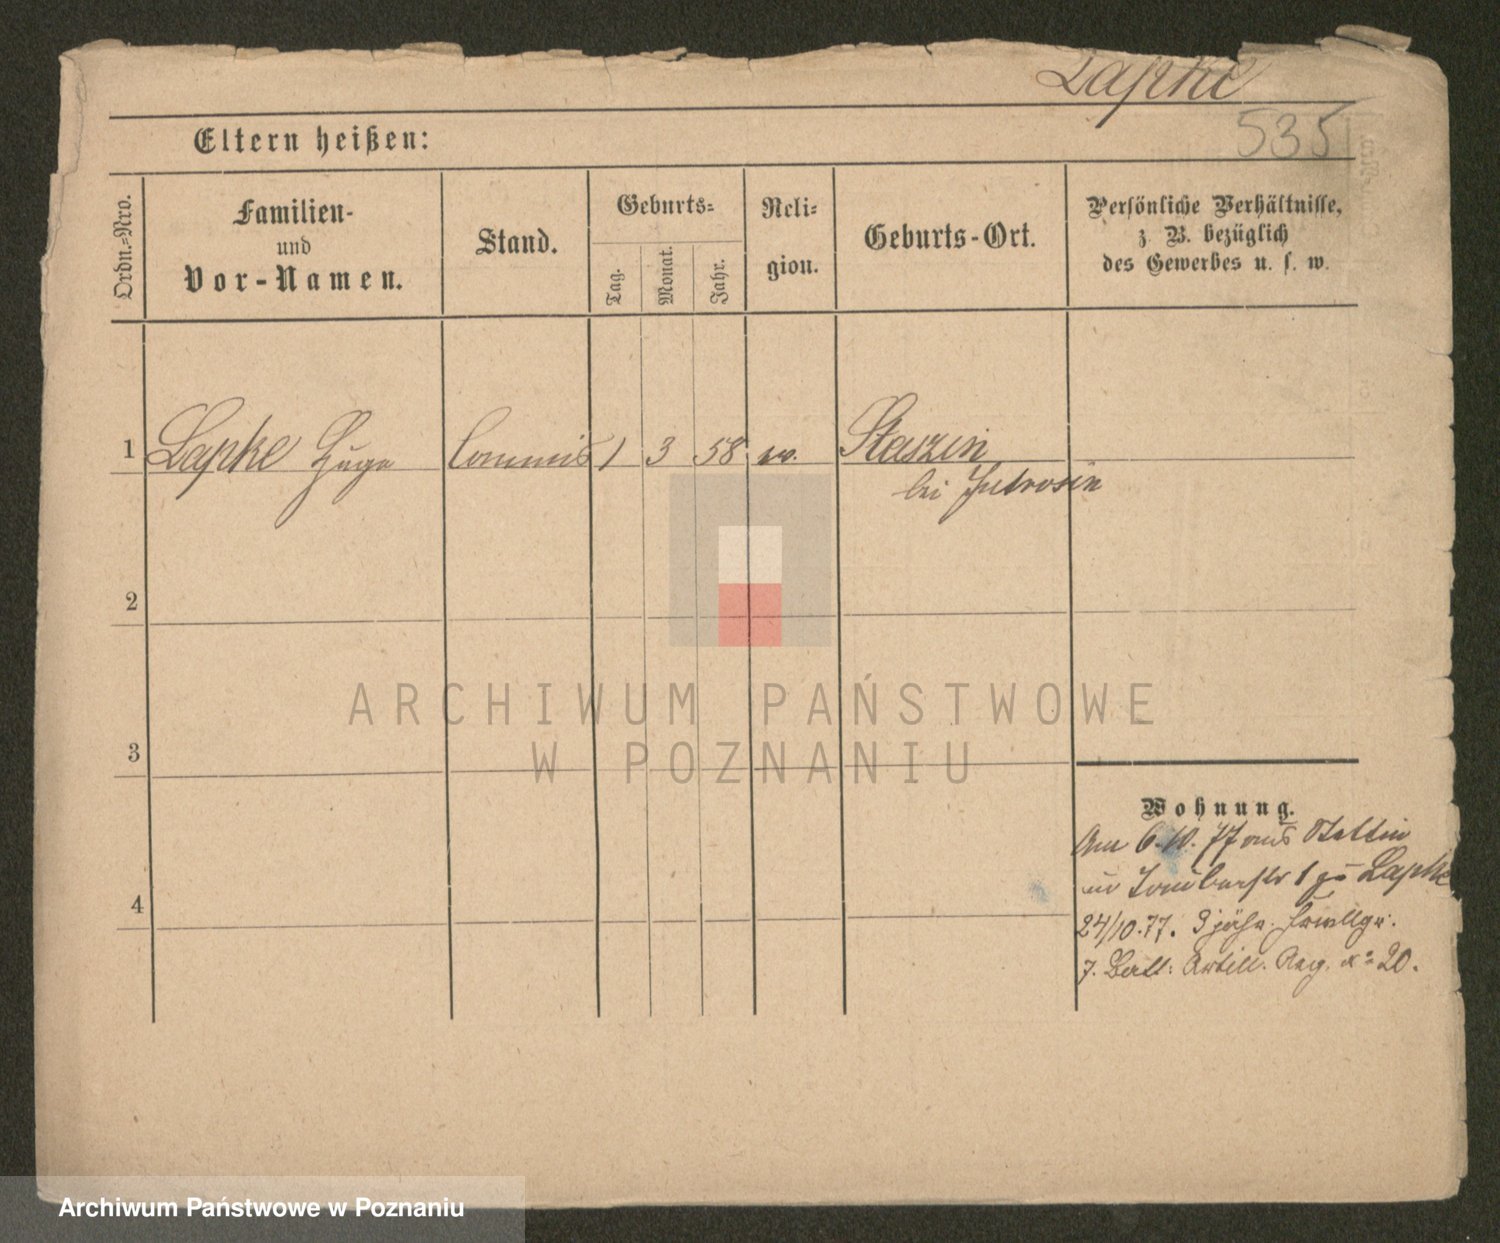 Lapke
535
Eltern heißen:
Ordn.=Nro.
Familien-
und
Vor-Namen.
Stand.
Geburts=
Tag.
Monat.
Jahr.
Reli=
gion.
Geburts-Ort.
Persönliche Verhältnisse,
z. B. bezüglich
des Gewerbes u. s. w.
1 Lapke Hugo Commis 1 3 58 ev. Staszin
bei Jutrosin
2
3
4
Wohnung.
Am 6.10.77 aus Stettin
1 zu Lapke
24/10.77. 3 jähr. Freiwllgr.
7. Batt: Artill. Reg. No 20.
ARCHIWUM PAŃSTWOWE
W POZNANIU
Archiwum Państwowe w Poznaniu